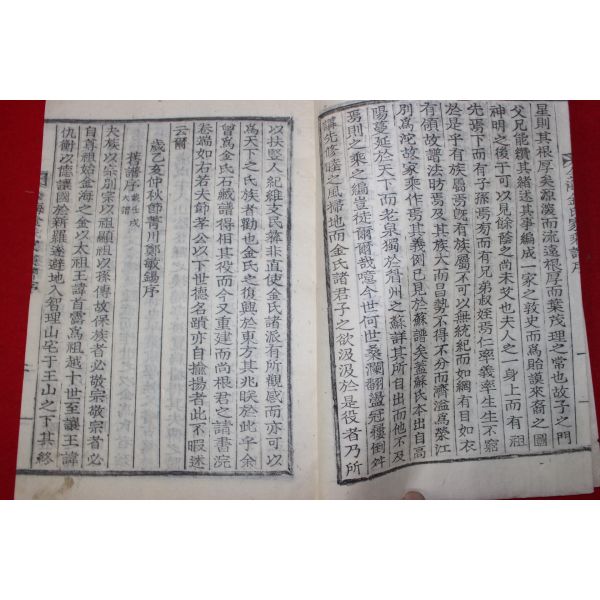 星則其根厚矣源浚而流遠根厚而葉茂理之常也故子之門
父兄能纘其緖述其事編成一家之敦史而爲貽謨來裔之圖
神明之後于可以見餘蔭之尚未艾也夫人之一身上而有祖
先焉下而有子孫焉旁而有兄弟叔姪焉仁率義率生生不窮
於是乎有族屬焉旣有族屬不可以無統紀而如網有目如衣
有領故譜法昉焉及其族大而昌勢不得不分而濟濫爲榮江
別爲沱故家乘作焉其義例已見於蘇譜矣盖蘇氏本出自高
陽蔓延於天下而老泉獨於眉州之蘇詳其所自出而他不及
焉則之乘之編豈徒爾爾哉噫今世何世桑瀾翻盪冠樓倒舛
講先修睦之風掃地而金氏諸君子之欲汲汲於是役者乃所
以扶豎人紀維支民彛非直使金氏諸派有所觀感而亦可以
爲天下之氏族者勸也金氏之復興於東方其兆眹於此乎余
曾爲金氏石藏譜得相其役而今又重建而尚根君之請書浣
卷端如右若大節孝公以下世德名蹟亦自揄揚者此不暇述
云爾
歲乙亥仲秋節菁川鄭敏錫序
舊譜序
大族以宗別宗以祖顯祖以孫傳故保族者必敬宗敬宗者必
自尊祖始金海之金以太祖王諱首露爲祖越十世至讓王諱
仇衝以德讓國於新羅遂避地入智理山宅于王山之下其終